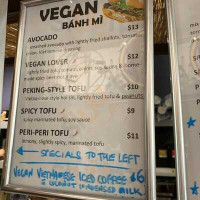 VEGAN
BÁNH MÌ
$13
AVOCADO
smashed avocado with lightly fried shallots, tomato
$12
VEGAN LOVER
lightly fried tofu
$10
PEKING-STYLE TOFU
Vietnamese style hoi sin, lightly fried tofu & peanuts
$9
SPICY TOFU
spicy marinated tofu, soy sauce
$11
PERI-PERI TOFU
lemony, slightly spicy, marinated tofu
SPECIALS TO THE LEFT
VEGAN VIETNAMESE ICED COFFEE $6
COCONUT CONDENSED MILK